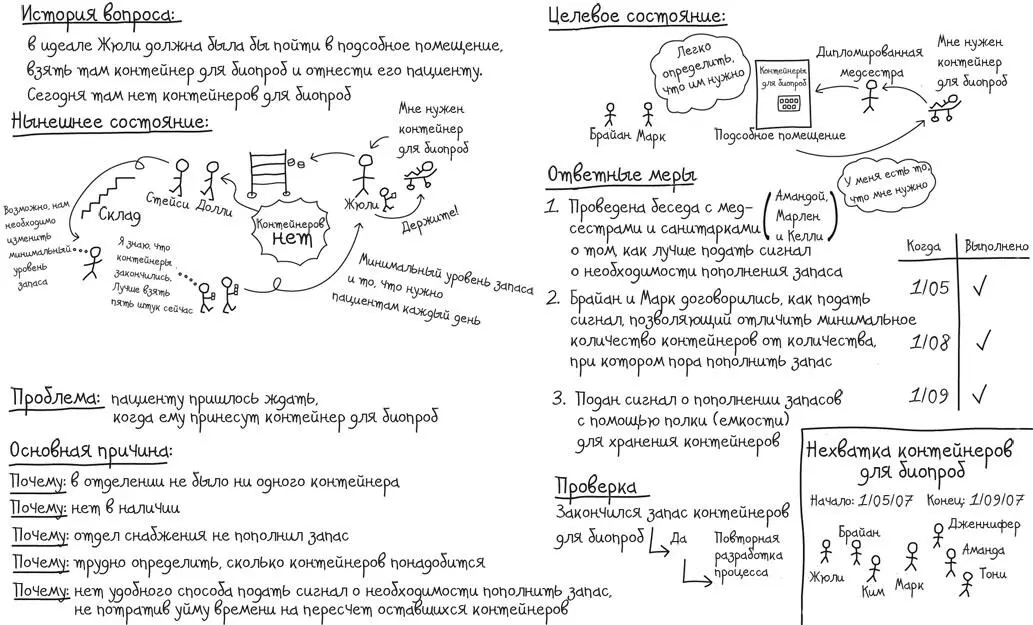 История вопроса:
в идеале Жюли должна была бы пойти в подсобное помещение,
взять там контейнер для биопроб и отнести его пациенту.
Сегодня там нет контейнеров для биопроб
Нынешнее состояние:
Мне нужен
контейнер
для биопроб
Стейси
Долли
Жюли
Склад
Контейнеров
нет
Держите!
Возможно, нам
необходимо
изменить
минимальный
уровень
запаса
Я знаю, что
контейнеры
закончились.
Лучше взять
пять штук сейчас
Минимальный уровень запаса
и то, что нужно
пациентам каждый день
Проблема: пациенту пришлось ждать,
когда ему принесут контейнер для биопроб
Основная причина:
Почему: в отделении не было ни одного контейнера
Почему: нет в наличии
Почему: отдел снабжения не пополнил запас
Почему: трудно определить, сколько контейнеров понадобится
Почему: нет удобного способа подать сигнал о необходимости пополнить запас,
не потратив уйму времени на пересчет оставшихся контейнеров
Целевое состояние:
Легко
определить,
что им нужно
Контейнеры
для биопроб
Дипломированная
медсестра
Мне нужен
контейнер
для биопроб
Брайан
Марк
Подсобное помещение
У меня есть то,
что мне нужно
Ответные меры
1. Проведена беседа с мед-
сестрами и санитарками
о том, как лучше подать сигнал
о необходимости пополнения запаса
Амандой,
Марлен
и Келли
2. Брайан и Марк договорились, как подать
сигнал, позволяющий отличить минимальное
количество контейнеров от количества,
при котором пора пополнить запас
3. Подан сигнал о пополнении запасов
с помощью полки (емкости)
для хранения контейнеров
Когда Выполнено
1/05 ✓
1/08 ✓
1/09 ✓
Проверка
Закончился запас контейнеров
для биопроб
Да
Повторная
разработка
процесса
Нехватка контейнеров
для биопроб
Начало: 1/05/07 Конец: 1/09/07
Жюли
Брайан
Ким
Марк
Дженнифер
Аманда
Тони